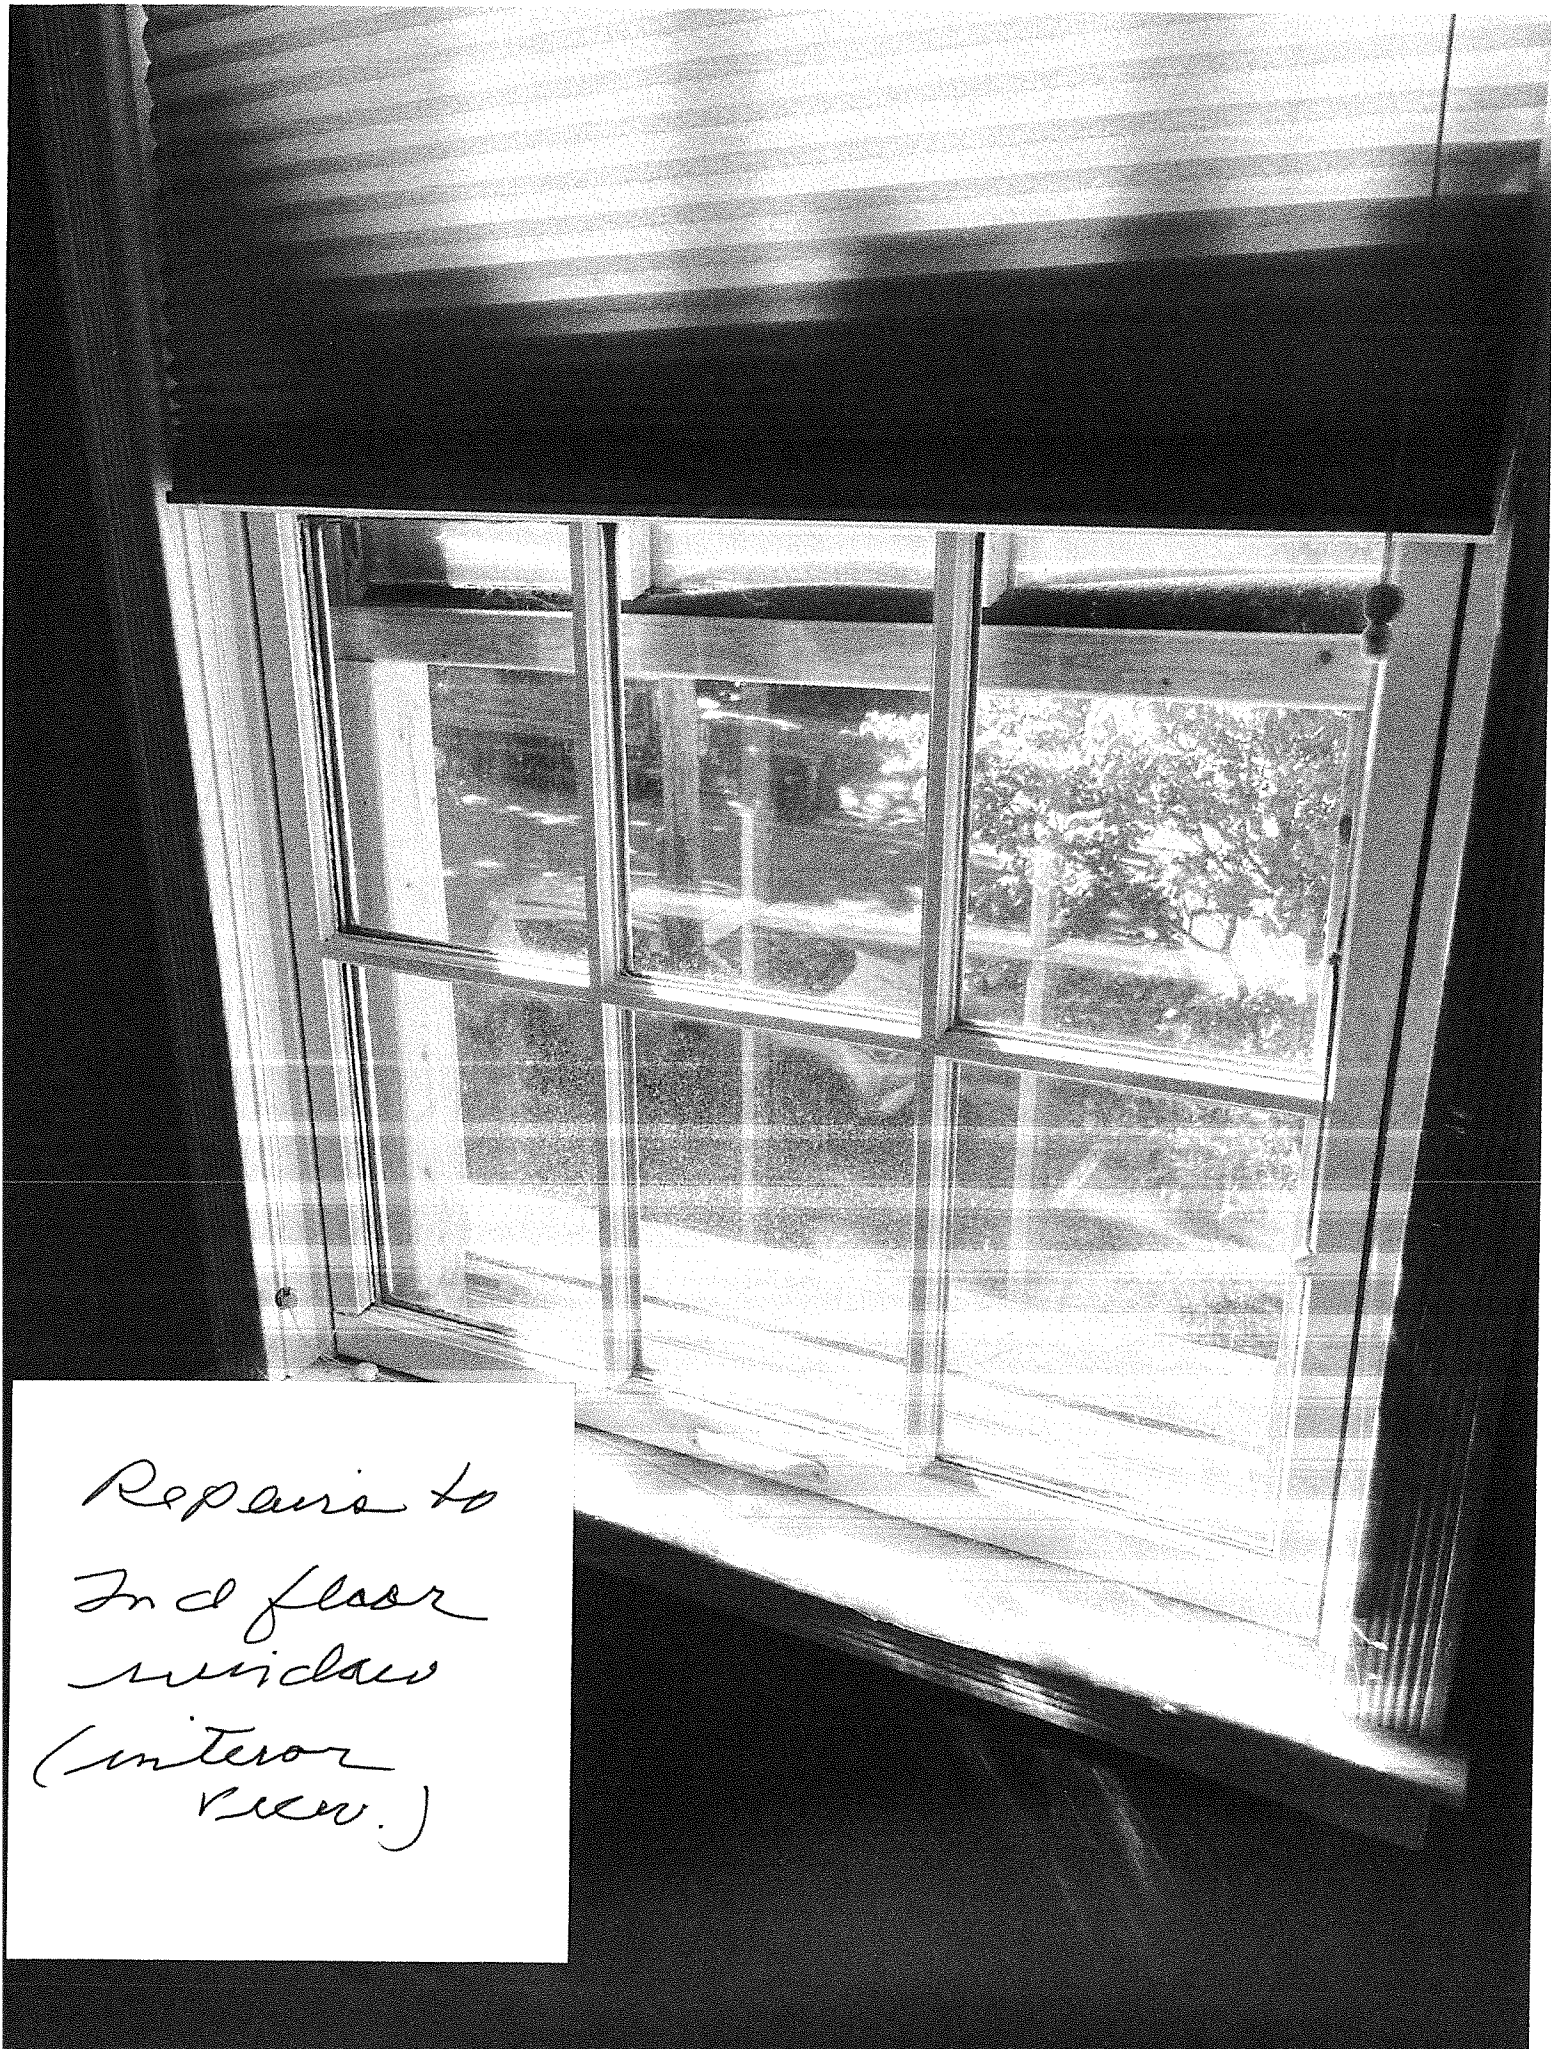 Repairs to
2nd floor
window
(interor
view.)